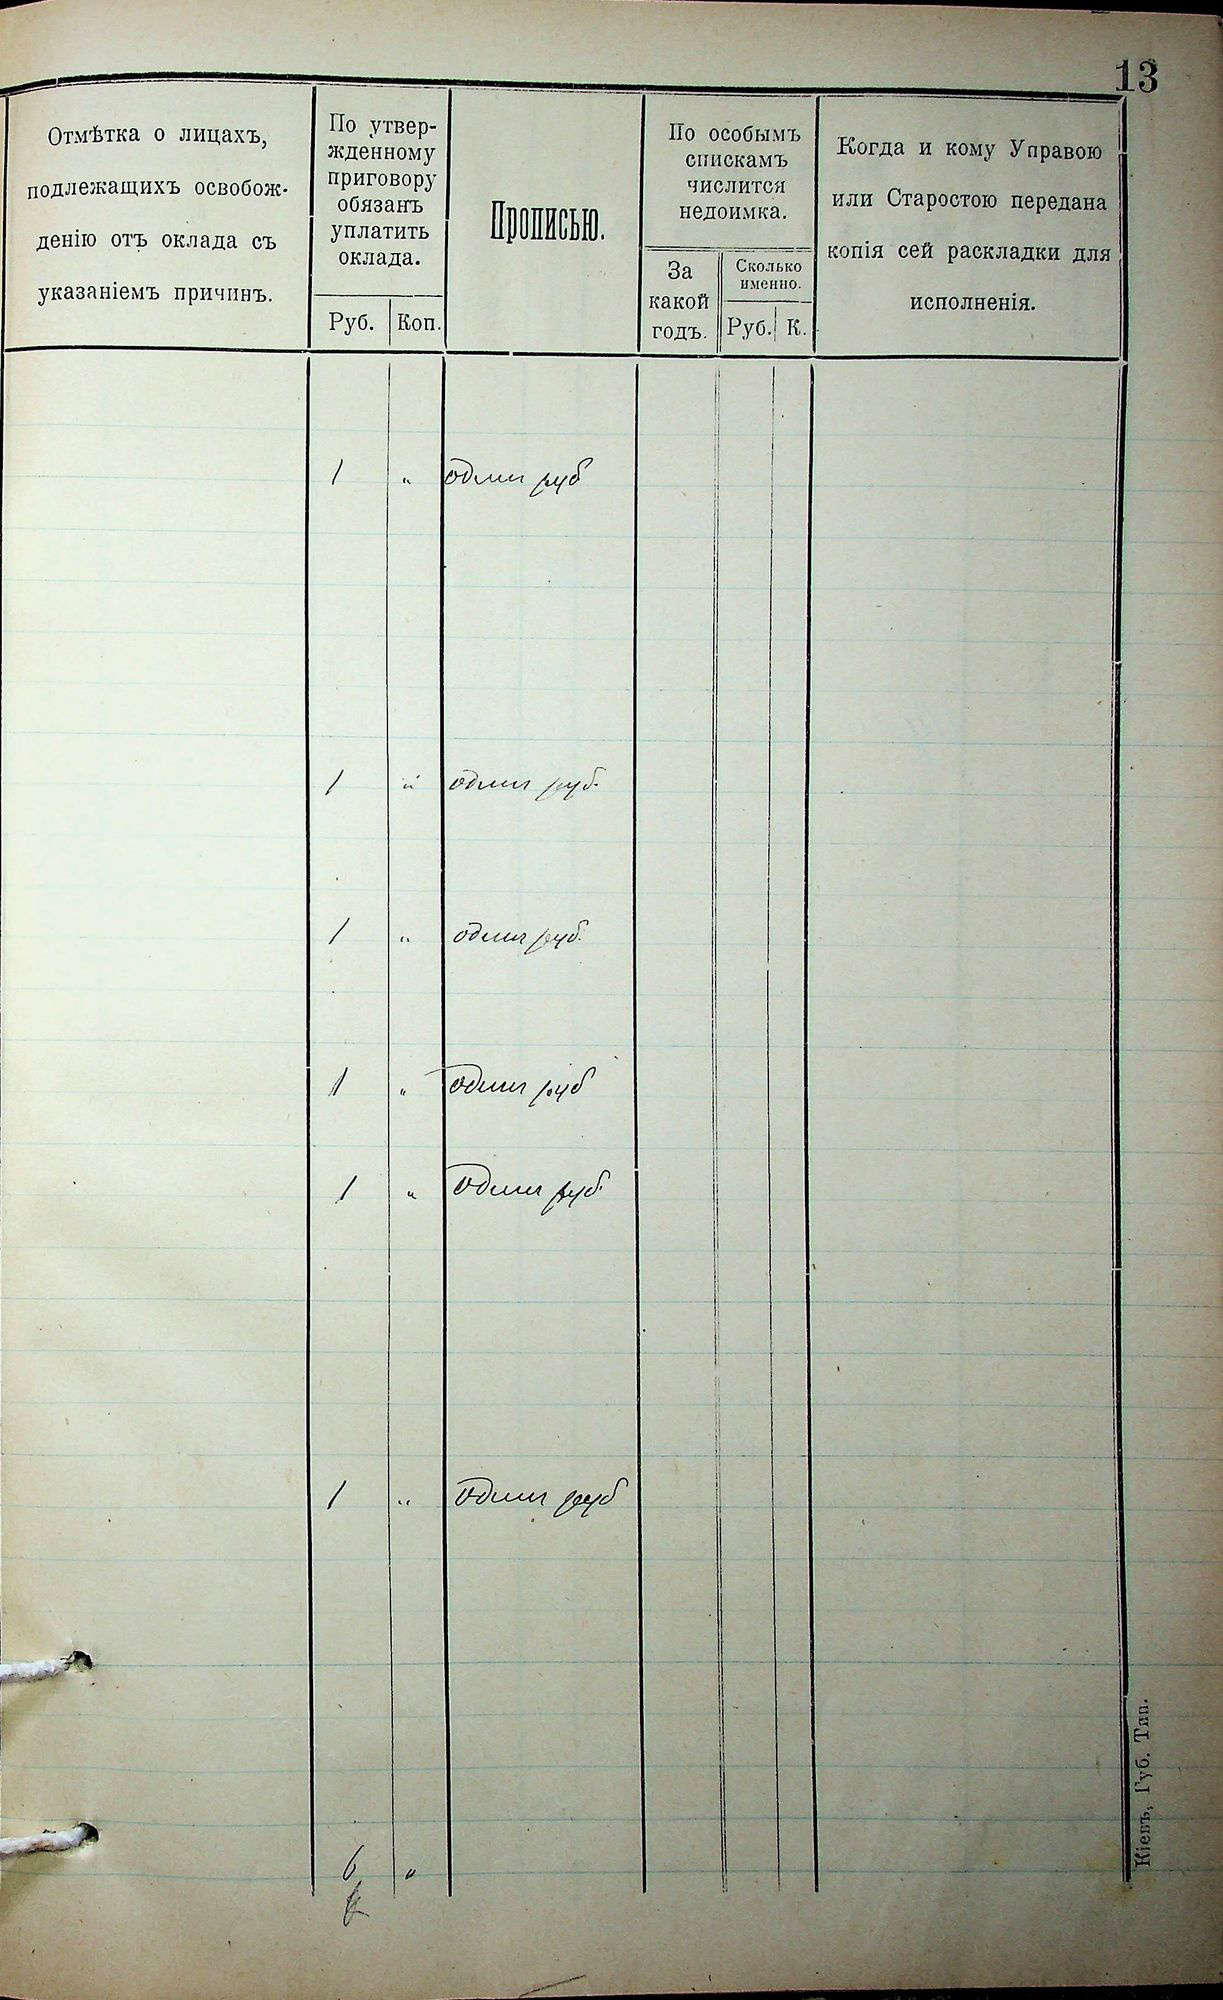 13
Отмѣтка о лицахъ,
подлежащихъ освобож-
денію отъ оклада съ
указаніемъ причинъ.
По утвер-
жденному
приговору
обязанъ
уплатить
оклада.
Руб. Коп.
Прописью.
По особымъ
спискамъ
числится
недоимка.
За
какой
годъ.
Сколько
именно.
Руб. К.
Когда и кому Управою
или Старостою передана
копія сей раскладки для
исполненія.
1 " один руб
1 " один руб.
1 " один руб.
1 " один руб
1 " один руб.
1 " один руб
6 "
Кіевъ, Губ. Тип.